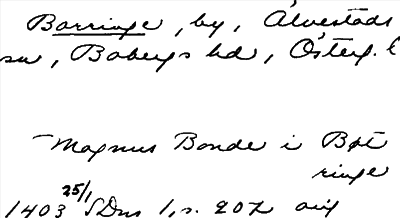 Borringe, by, Älvestads
sn, Bobergs hd, Österg.
Magnus Bonde i Bøt
ringe
1403 25/1 SDns 1, s. 202 orig